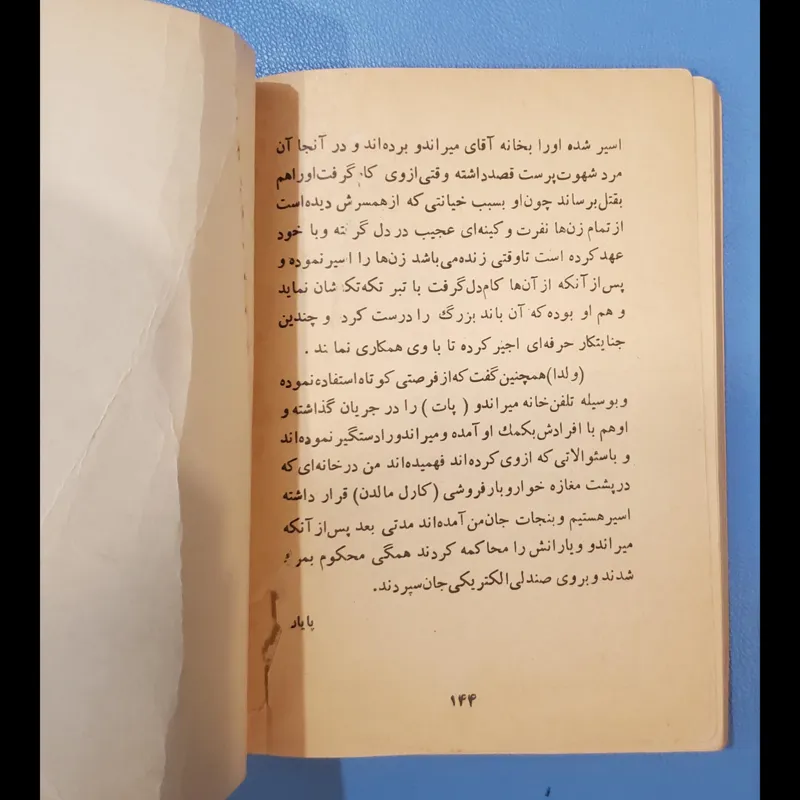 اسیر شده اورا بخانه آقای میراندو برده‌اند و در آنجا آن
مرد شهوت‌پرست قصدداشته وقتی ازوی کام گرفت اوراهم
بقتل برساند چون او بسبب خیانتی که ازهمسرش دیده‌است
ازتمام زن‌ها نفرت و کینه‌ای عجیب در دل گرفته و با خود
عهد کرده است تاوقتی زنده می‌باشد زن‌ها را اسیر نموده و
پس از آنکه از آن‌ها کام‌دل گرفت با تبر تکه‌تکه‌شان نماید
و هم او بوده که آن باند بزرگ را درست کرده و چندین
جنایتکار حرفه‌ای اجیر کرده تا با وی همکاری نمایند .
(ولدا) همچنین گفت که از فرصتی کوتاه استفاده نموده
و بوسیله تلفن‌خانه میراندو ( پات ) را در جریان گذاشته و
اوهم با افرادش بکمك او آمده و میراندورا دستگیر نموده‌اند
و باسئوالاتی که ازوی کرده‌اند فهمیده‌اند من درخانه‌ای که
درپشت مغازه خواروبارفروشی (کارل مالدن) قرار داشته
اسیر هستیم و بنجات جان‌من آمده‌اند مدتی بعد پس‌از آنکه
میراندو و یارانش را محاکمه کردند همگی محکوم بمرگ
شدند و بروی صندلی الکتریکی جان سپردند.
پایان
۱۴۴